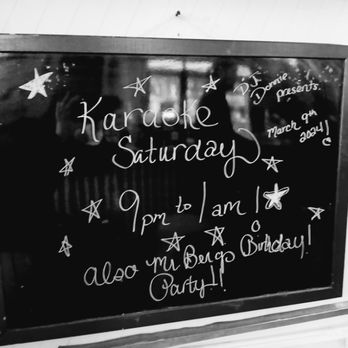 D.J.
Donnie
presents.
March 9th
2024!
Karaoke
Saturday
9pm to 1am!
Also Mr Bergs Birthday!
Party!!